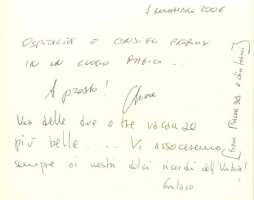 1 NOVEMBRE 2006
OSPITALITÀ E CONSIGLI PREZIOSI
IN UN LUOGO MAGICO...
A presto!
Una delle due o tre vacanze
più belle.... Vi assoceremo
sempre ai nostri dolci ricordi dell'Umbria!
Gustavo